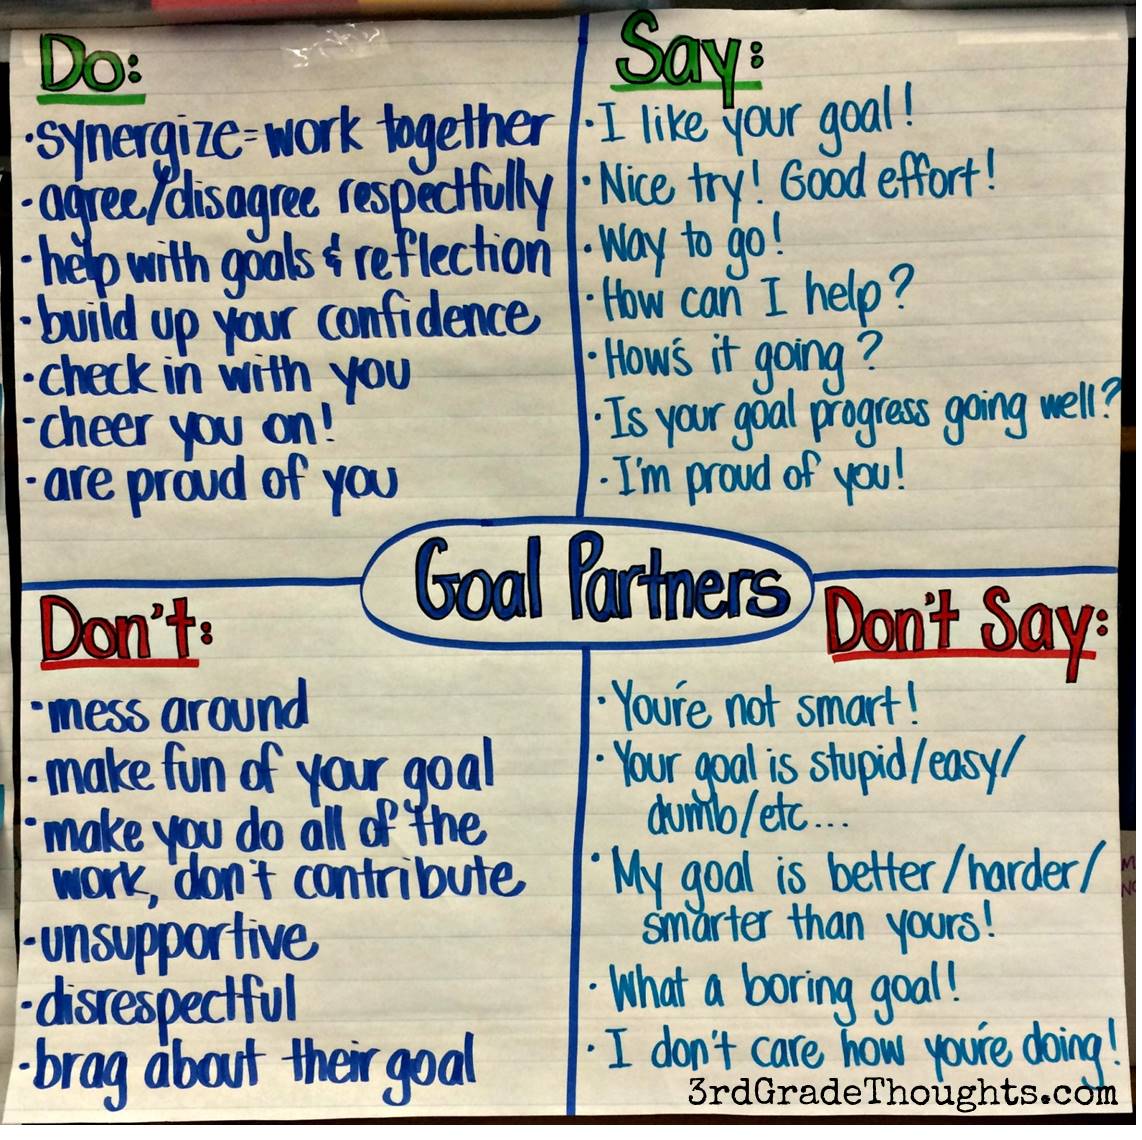 Do:
·synergize=work together
·agree/disagree respectfully
·help with goals & reflection
·build up your confidence
·check in with you
·cheer you on!
·are proud of you
Say:
·I like your goal!
·Nice try! Good effort!
·Way to go!
·How can I help?
·How's it going?
·Is your goal progress going well?
·I'm proud of you!
Goal Partners
Don't:
·mess around
·make fun of your goal
·make you do all of the
work, don't contribute
·unsupportive
·disrespectful
·brag about their goal
Don't Say:
·You're not smart!
·Your goal is stupid/easy/
dumb/etc...
·My goal is better/harder/
smarter than yours!
·What a boring goal!
·I don't care how you're doing!
3rdGradeThoughts.com